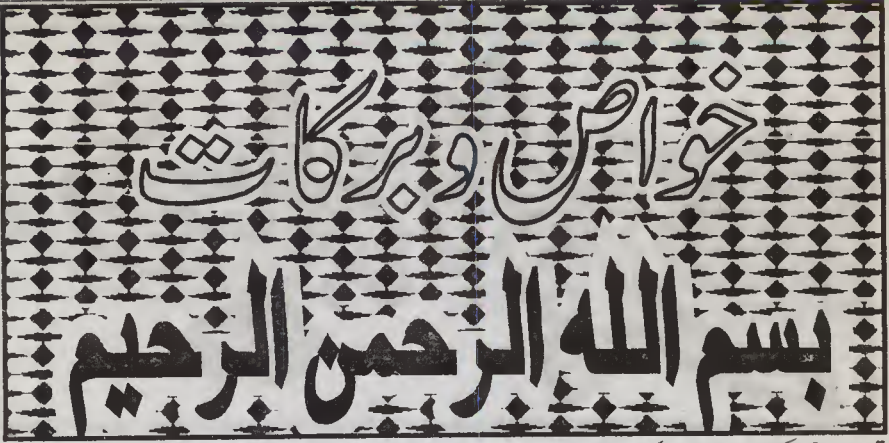 خواص و برکات
بسم الله الرحمن الرحیم